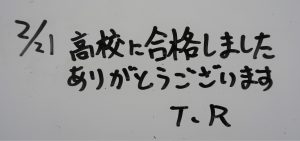 2/21 高校に合格しました
ありがとうございます
T、R